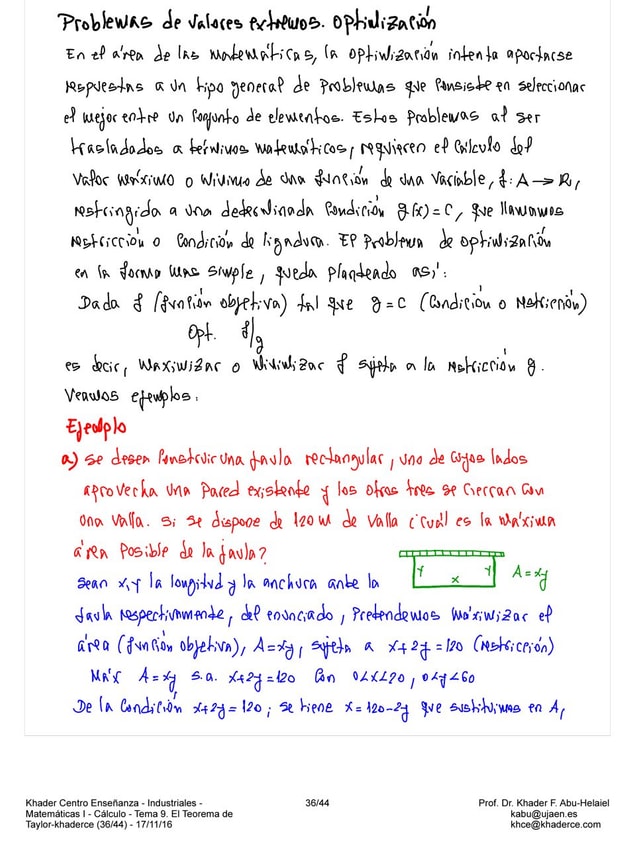 Problemas de valores extremos. Optimización
En el área de las matemáticas, la optimización intenta aportarse
respuestas a un tipo general de problemas que consiste en seleccionar
el mejor entre un conjunto de elementos. Estos problemas al ser
trasladados a términos matemáticos, requieren el cálculo del
valor máximo o mínimo de una función de una variable, f: A → R,
restringida a una determinada condición g(x) = c, que llamamos
restricción o condición de ligadura. El problema de optimización
en la forma más simple, queda planteado así:
Dada f (función objetiva) tal que g = c (condición o restricción)
Opt. f/g
es decir, maximizar o minimizar f sujeta a la restricción g.
Veamos ejemplos:
Ejemplo
a) Se desea construir una jaula rectangular, uno de cuyos lados
aprovecha una pared existente y los otros tres se cierran con
una valla. Si se dispone de 120 m de valla ¿cuál es la máxima
área posible de la jaula?
y y
x
A = xy
Sean x, y la longitud y la anchura ante la
jaula respectivamente, del enunciado, pretendemos maximizar el
área (función objetiva), A = xy, sujeta a x + 2y = 120 (restricción)
Máx A = xy s.a. x + 2y = 120 con 0 < x < 120, 0 < y < 60
De la condición x + 2y = 120; se tiene x = 120 - 2y que sustituimos en A,
Khader Centro Enseñanza - Industriales -
Matemáticas I - Cálculo - Tema 9. El Teorema de
Taylor-khaderce (36/44) - 17/11/16
36/44
Prof. Dr. Khader F. Abu-Helaiel
kabu@ujaen.es
khce@khaderce.com